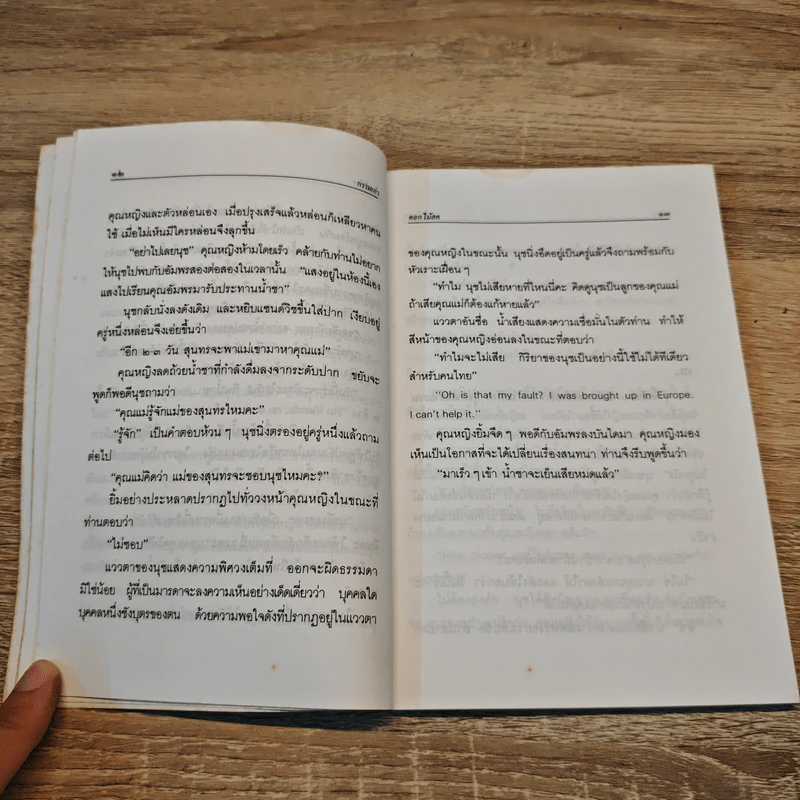 ๑๒
กรรมเก่า
คุณหญิงและตัวหล่อนเอง เมื่อปรุงเสร็จแล้วหล่อนก็เหลียวหาคน
ใช้ เมื่อไม่เห็นมีใครหล่อนจึงลุกขึ้น
“อย่าไปเลยนุช” คุณหญิงห้ามโดยเร็ว คล้ายกับท่านไม่อยาก
ให้นุชไปพบกับอัมพรสองต่อสองในเวลานั้น “แสงอยู่ในห้องนี้เอง
แสงไปเรียนคุณอัมพรมารับประทานน้ำชา”
นุชกลับนั่งลงดังเดิม และหยิบแซนด์วิชขึ้นใส่ปาก เงียบอยู่
ครู่หนึ่งหล่อนจึงเอ่ยขึ้นว่า
“อีก ๒-๓ วัน สุนทรจะพาแม่เขามาหาคุณแม่”
คุณหญิงลดถ้วยน้ำชาที่กำลังดื่มลงจากระดับปาก ขยับจะ
พูดก็พอดีนุชถามว่า
“คุณแม่รู้จักแม่ของสุนทรไหมคะ”
“รู้จัก” เป็นคำตอบห้วน ๆ นุชนิ่งตรองอยู่ครู่หนึ่งแล้วถาม
ต่อไป
“คุณแม่คิดว่า แม่ของสุนทรจะชอบนุชไหมคะ?”
ยิ้มอย่างประหลาดปรากฏไปทั่ววงหน้าคุณหญิงในขณะที่
ท่านตอบว่า
“ไม่ชอบ”
แววตาของนุชแสดงความพิศวงเต็มที่ ออกจะผิดธรรมดา
มิใช่น้อย ผู้ที่เป็นมารดาจะลงความเห็นอย่างเด็ดเดี่ยวว่า บุคคลใด
บุคคลหนึ่งชังบุตรของตน ด้วยความพอใจดังที่ปรากฏอยู่ในแววตา
ดอกไม้สด
๑๓
ของคุณหญิงในขณะนั้น นุชนิ่งอึดอยู่เป็นครู่แล้วจึงถามพร้อมกับ
หัวเราะเฝื่อน ๆ
“ทำไม นุชไม่เสียหายที่ไหนนี่คะ คิดดูนุชเป็นลูกของคุณแม่
ถ้าเสียคุณแม่ก็ต้องแก้หายแล้ว”
แววตาอันซื่อ น้ำเสียงแสดงความเชื่อมั่นในตัวท่าน ทำให้
สีหน้าของคุณหญิงอ่อนลงในขณะที่ตอบว่า
“ทำไมจะไม่เสีย กิริยาของนุชเป็นอย่างนี้ใช้ไม่ได้ทีเดียว
สำหรับคนไทย”
“Oh is that my fault? I was brought up in Europe.
I can't help it.”
คุณหญิงยิ้มจืด ๆ พอดีกับอัมพรลงบันไดมา คุณหญิงมอง
เห็นเป็นโอกาสที่จะได้เปลี่ยนเรื่องสนทนา ท่านจึงรีบพูดขึ้นว่า
“มาเร็ว ๆ เข้า น้ำชาจะเย็นเสียหมดแล้ว”